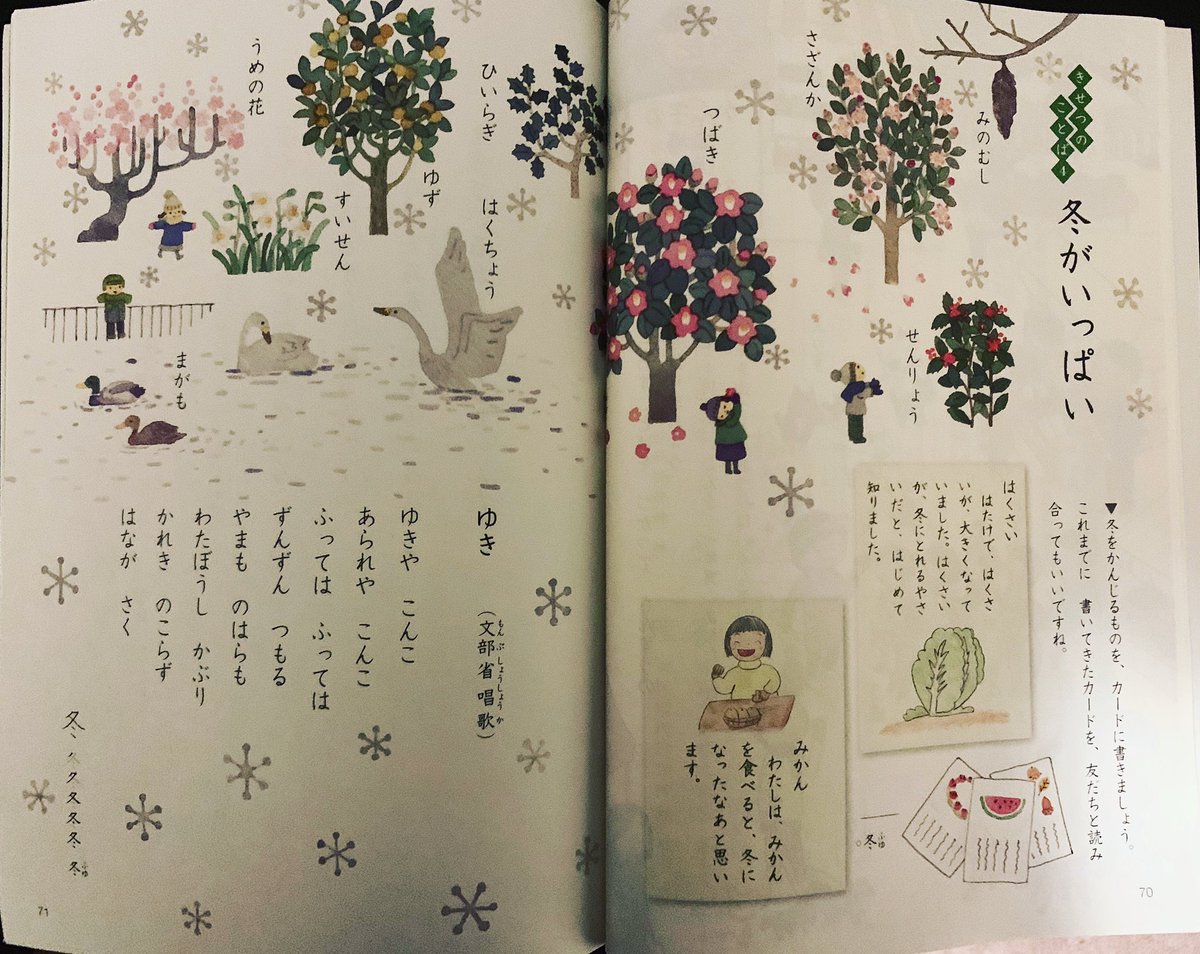 きせつの
ことば4
冬がいっぱい
▼冬をかんじるものを、カードに書きましょう。
これまでに 書いてきたカードを、友だちと読み
合ってもいいですね。
みのむし
さざんか
つばき
せんりょう
はくさい
はたけで、はくさ
いが、大きくなって
いました。はくさい
が、冬にとれるやさ
いだと、はじめて
知りました。
みかん
わたしは、みかん
を食べると、冬に
なったなあと思い
ます。
冬
ふゆ
70
ひいらぎ
はくちょう
ゆず
すいせん
うめの花
まがも
ゆき
(文部省唱歌)
もんぶしょうしょうか
ゆきや こんこ
あられや こんこ
ふっては ふっては
ずんずん つもる
やまも のはらも
わたぼうし かぶり
かれき のこらず
はなが さく
冬
ノ
ク
夂
冬
冬
冬
ふゆ
71